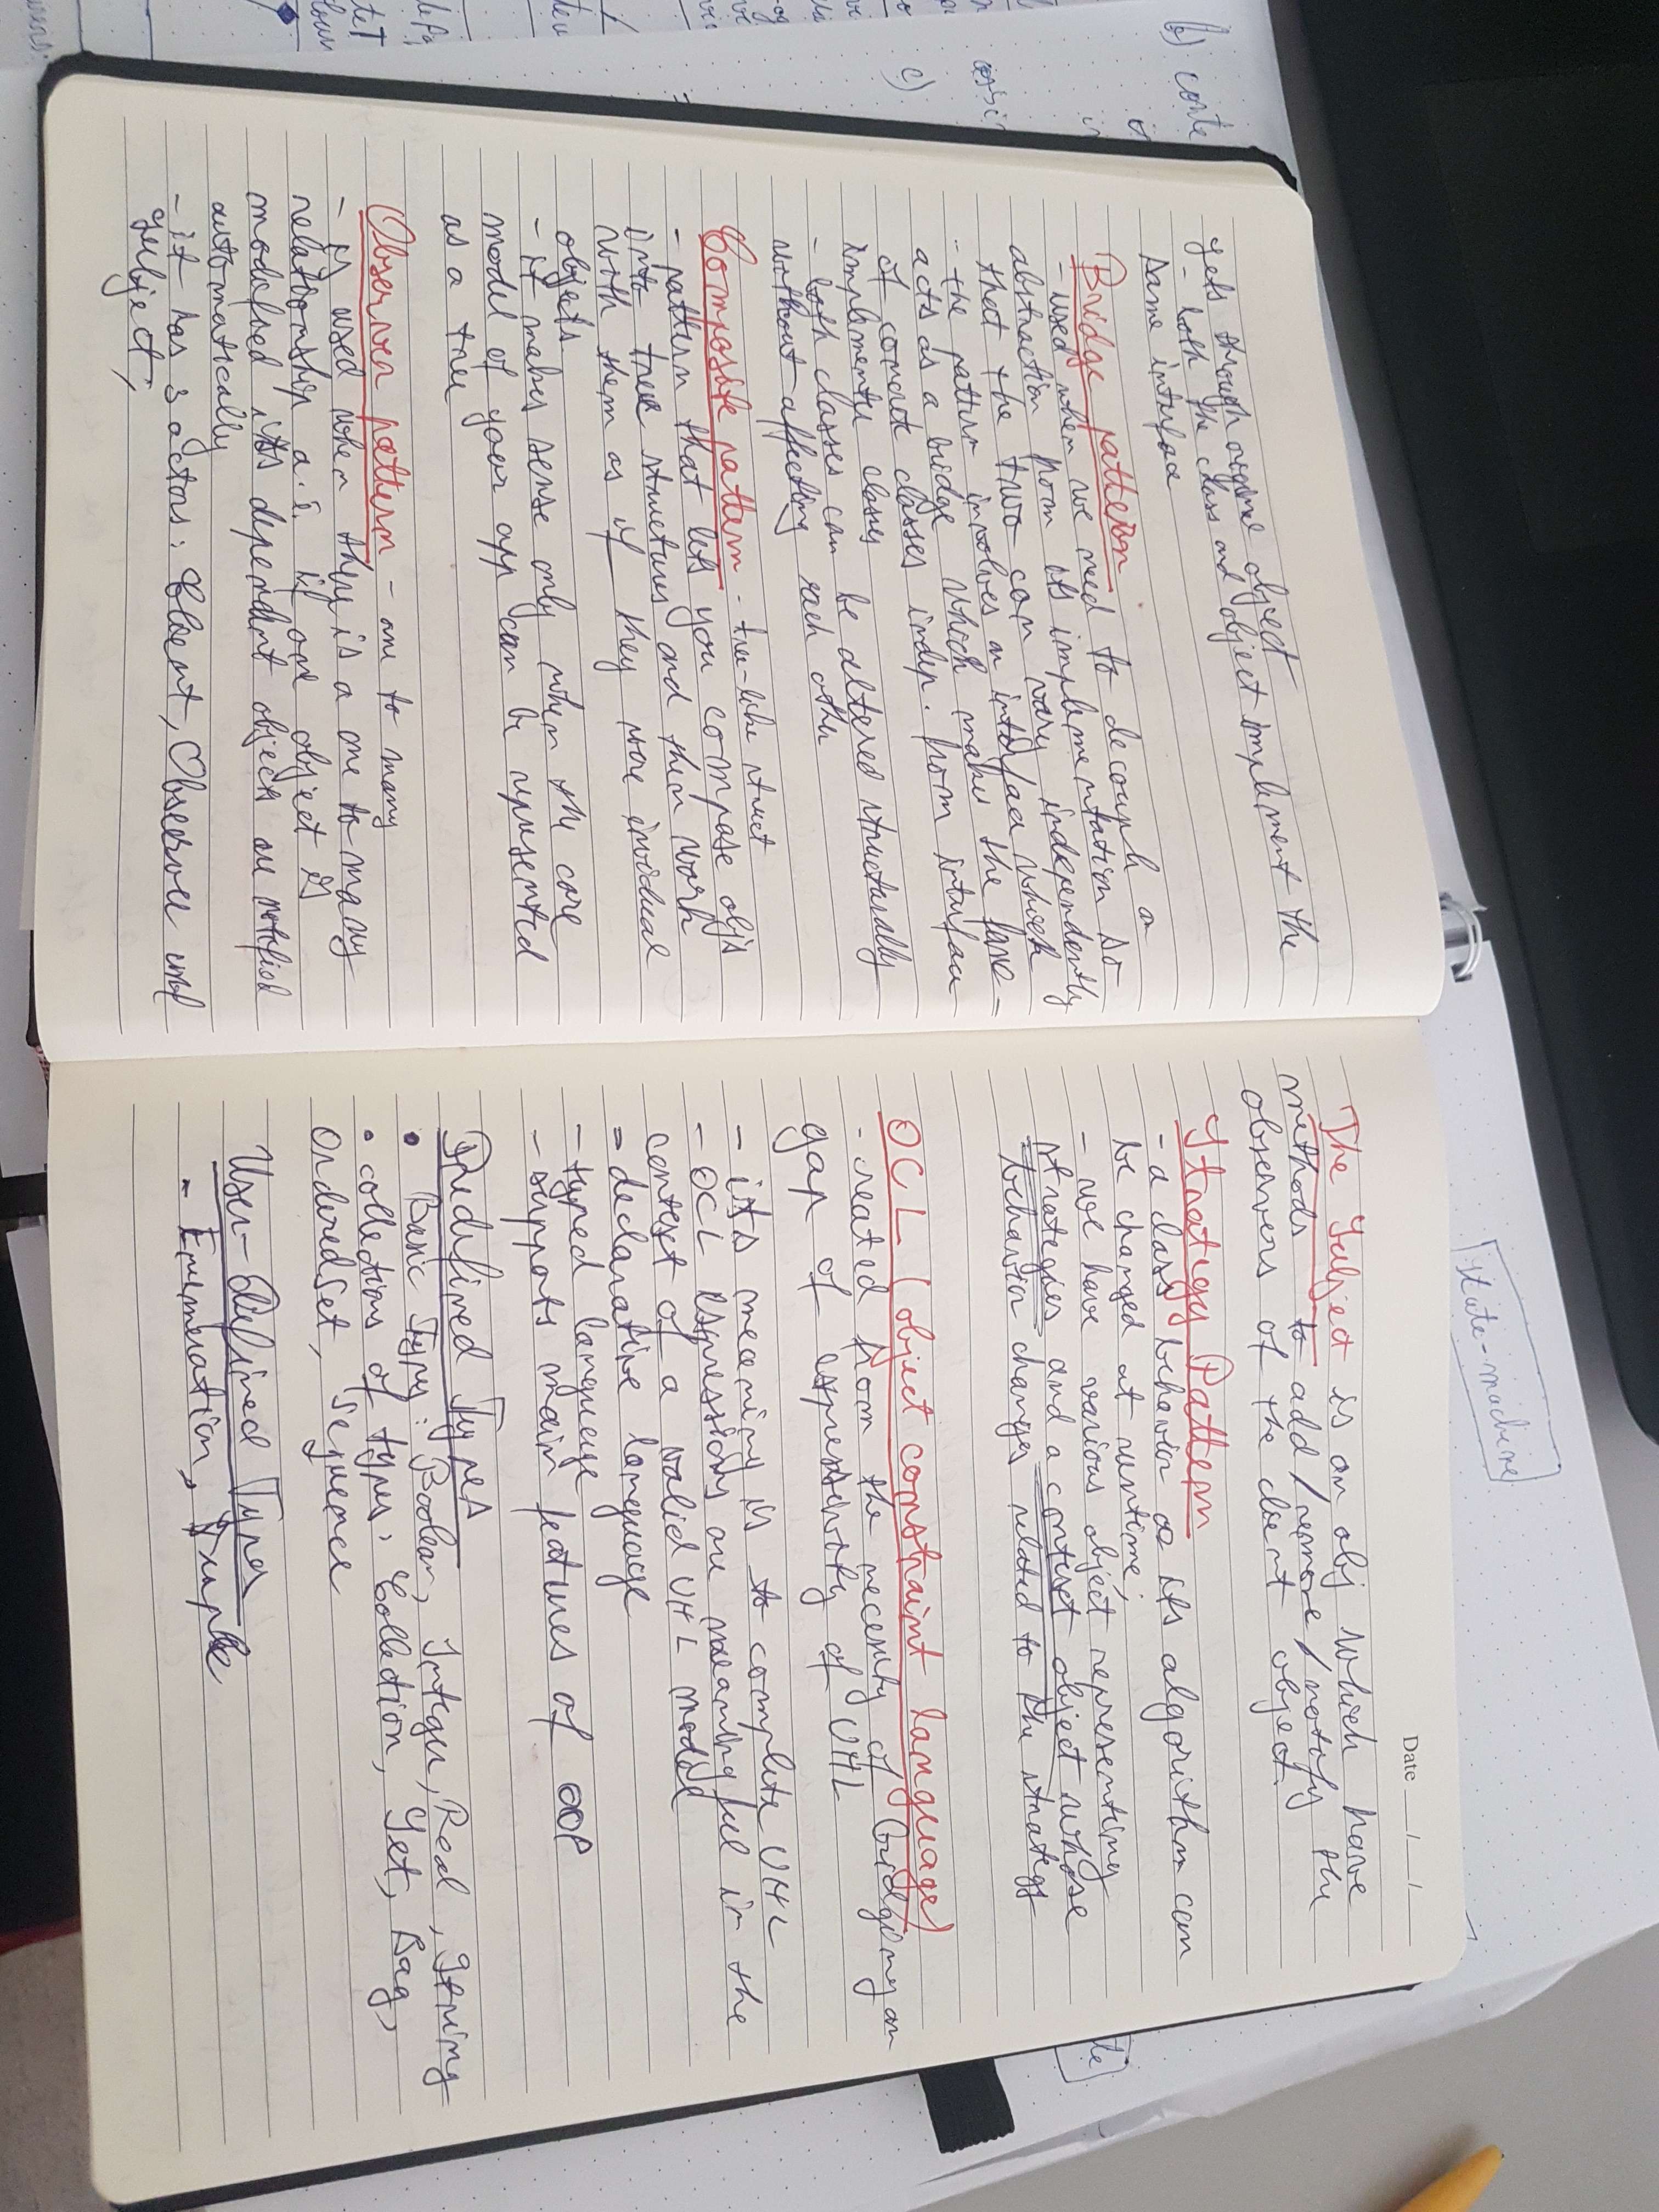 gets through origine object
- both the class and object implement the
same interface
Bridge pattern
- used when we need to decouple an
abstraction from its implementation so
that the two can vary independently
- the pattern involves an interface which
acts as a bridge which makes the func=
of concrete classes indep. from interface
implementer classes
- both classes can be altered structurally
without affecting each other
Composite pattern - tree-like struct
- pattern that lets you compose objs
into tree structures and then work
with them as if they were invidual
objects.
- it makes sense only when the core
model of your app can be represented
as a tree
Observer pattern - one to many
- is used when they is a one to many
relationship a.i. if one object is
modified, its dependent objects are notified
automatically
- it has 3 actors: Client, Observer and
Subject;
Date __/__/__
The Subject is an obj which have
methods to add/remove/notify the
observers of the client object.
Strategy Pattern
- a class behavior or its algorithm can
be changed at runtime;
- we have various object representing
strategies and a context object whose
behavior changes related to the strategy
OCL (object constraint language)
- created from the necessity of bridging an
gap of expressivity of UML
- its meaning is to complete UML
- OCL expressions are meaningful in the
context of a valid UML model
= declarative language
- typed language
- supports main features of OOP
Predefined Types
• Basic Types: Boolean, Integer, Real, String
• collections of types: Collection, Set, Bag,
OrderedSet, Sequence
User-Defined Types
- Enumeration, Tuple
state-machine
b) conte
c)